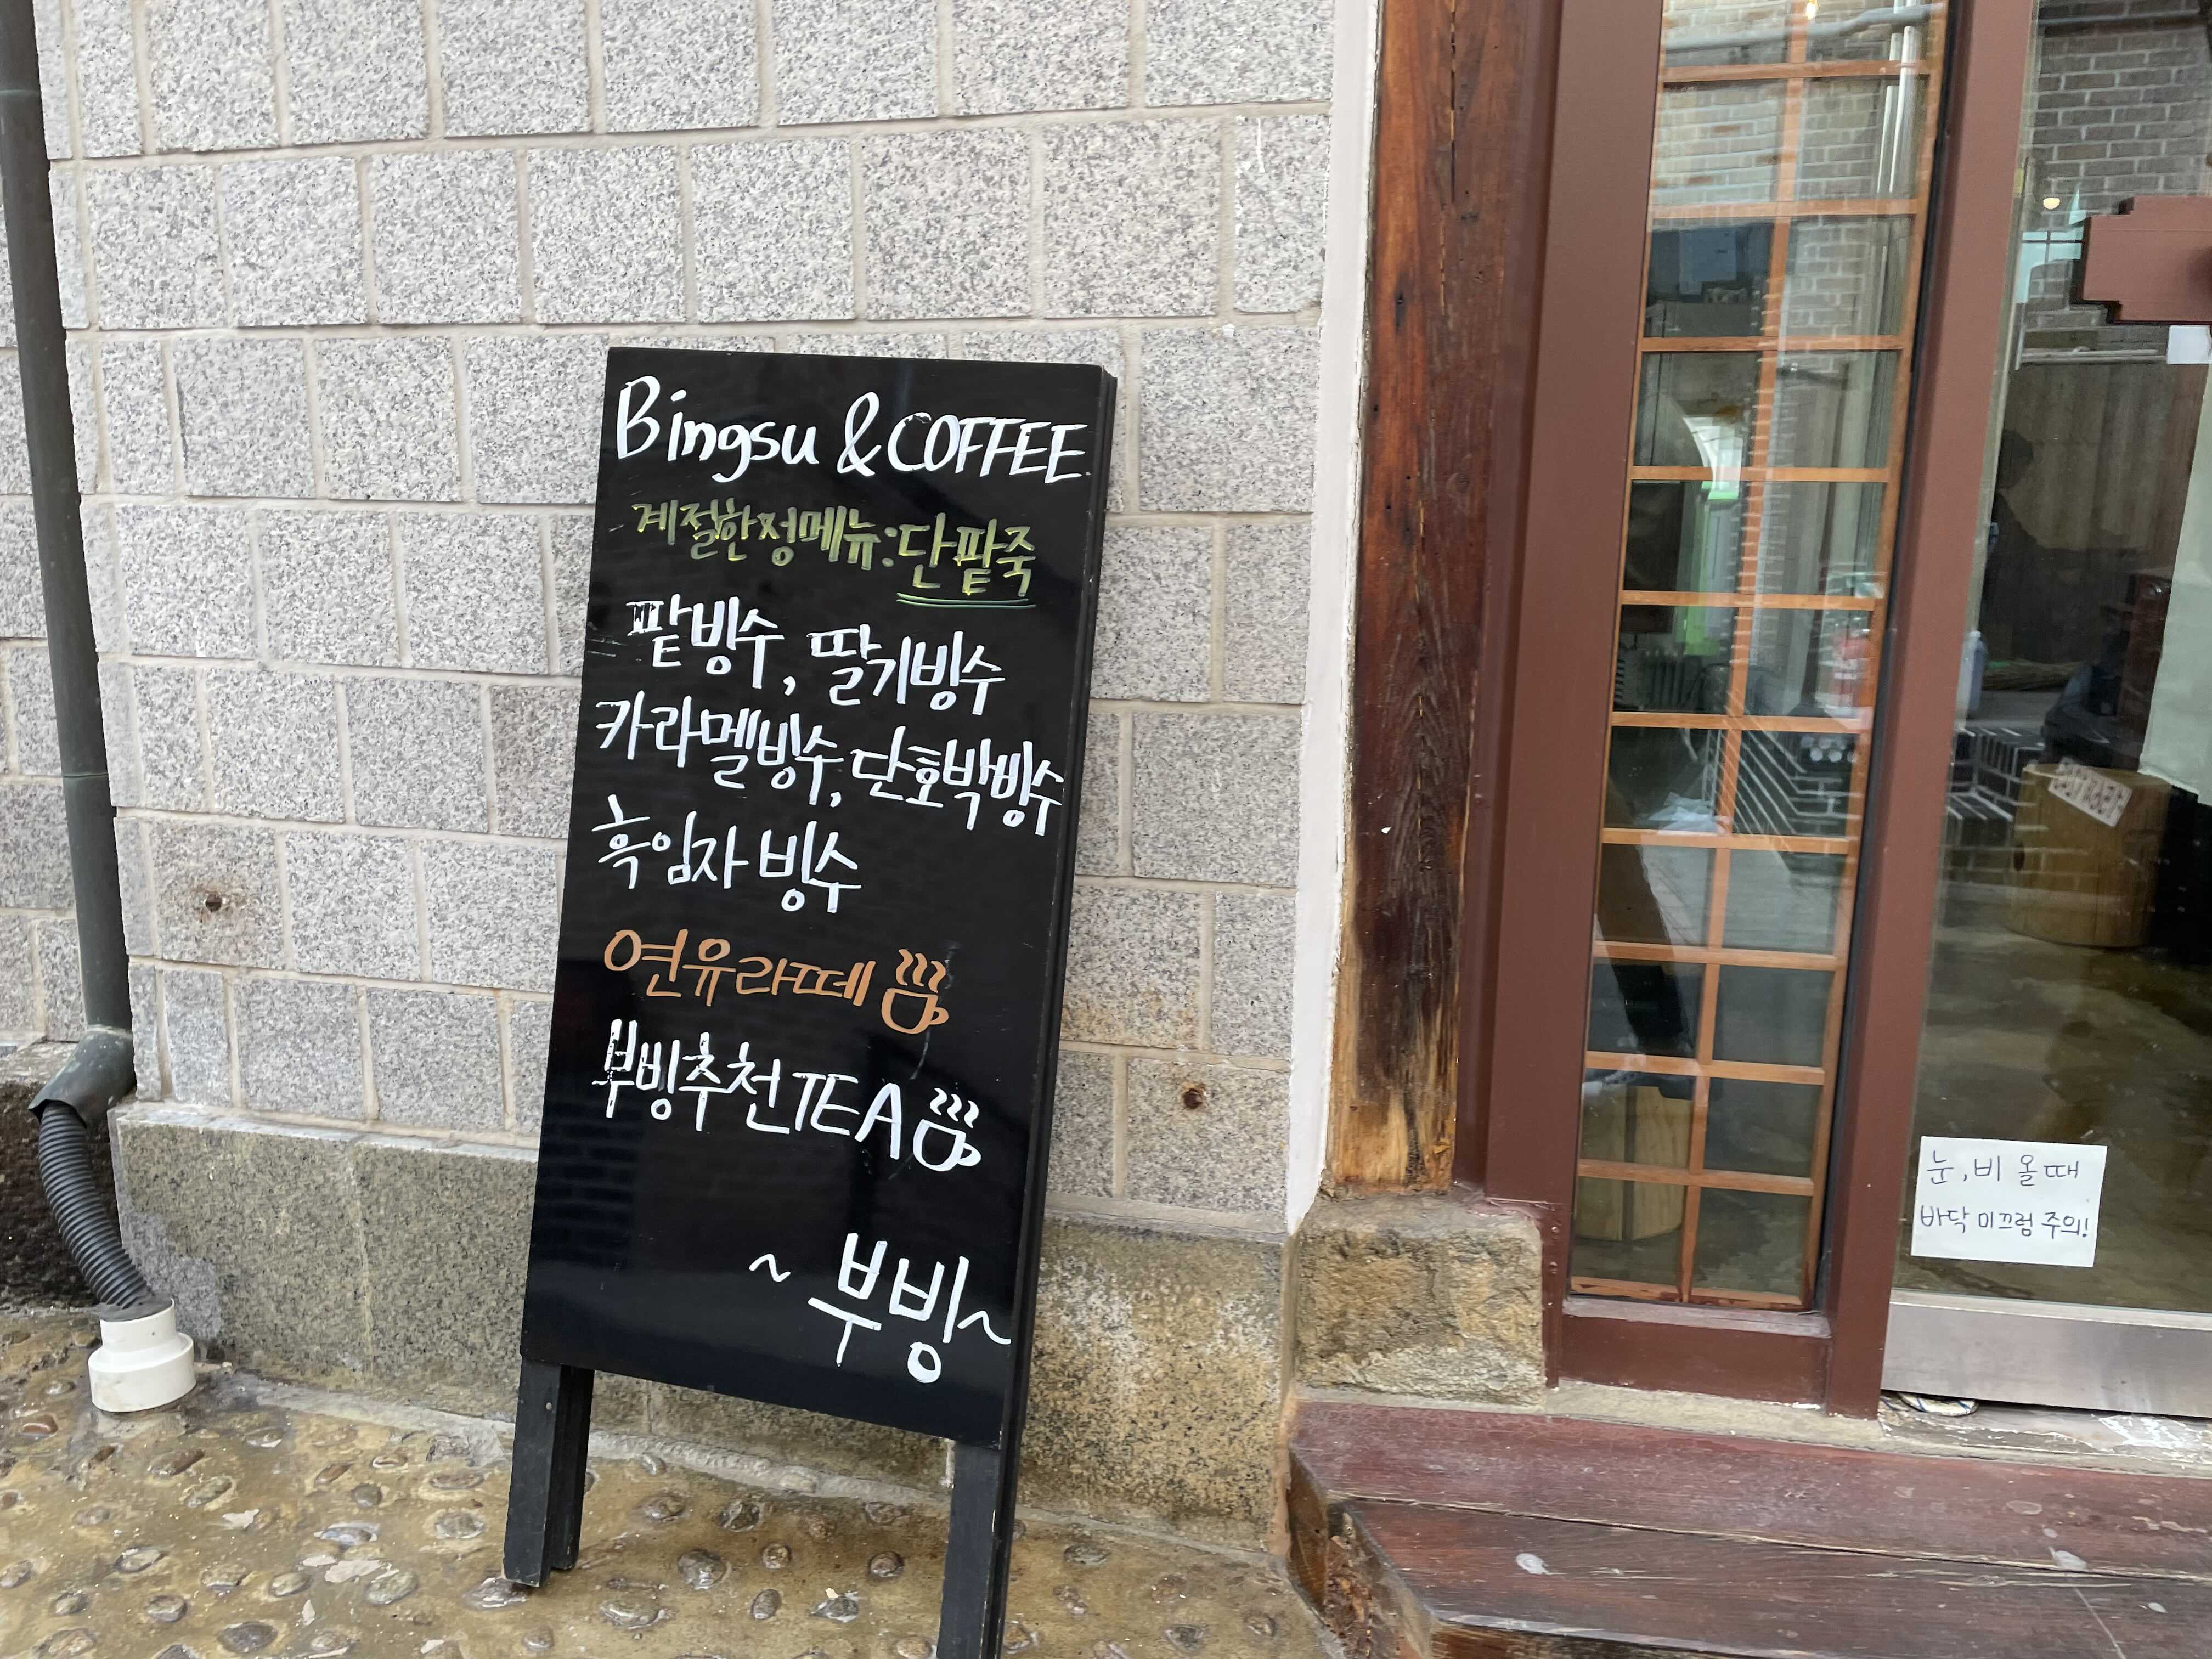 Bingsu & COFFEE
계절한정메뉴:단팥죽
팥빙수, 딸기빙수
카라멜빙수, 단호박빙수
흑임자 빙수
연유라떼
부빙추천TEA
~ 부빙~
눈,비 올때
바닥 미끄럼 주의!